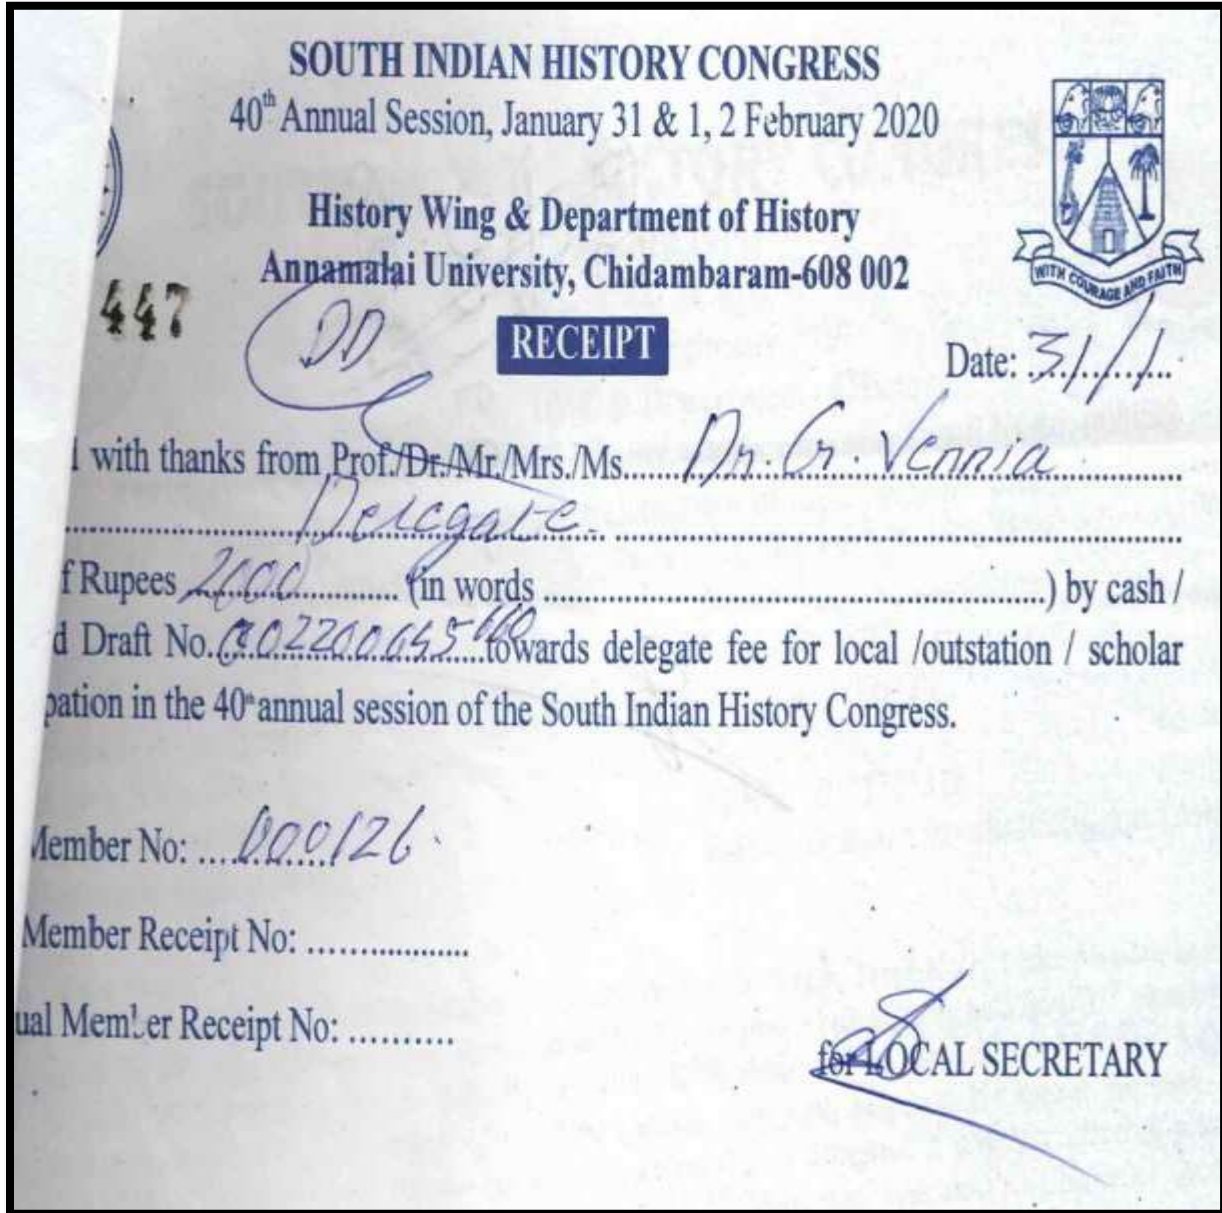 SOUTH INDIAN HISTORY CONGRESS
40th Annual Session, January 31 & 1, 2 February 2020
History Wing & Department of History
Annamalai University, Chidambaram-608 002
WITH COURAGE AND FAITH
447
DD
RECEIPT
Date: 31/1
d with thanks from Prof./Dr./Mr/Mrs./Ms. Dr. G. Vennia
Delegate
f Rupees 2000 (in words ) by cash /
d Draft No. towards delegate fee for local /outstation / scholar
pation in the 40th annual session of the South Indian History Congress.
Member No: 000126
Member Receipt No:
ual Member Receipt No:
for LOCAL SECRETARY